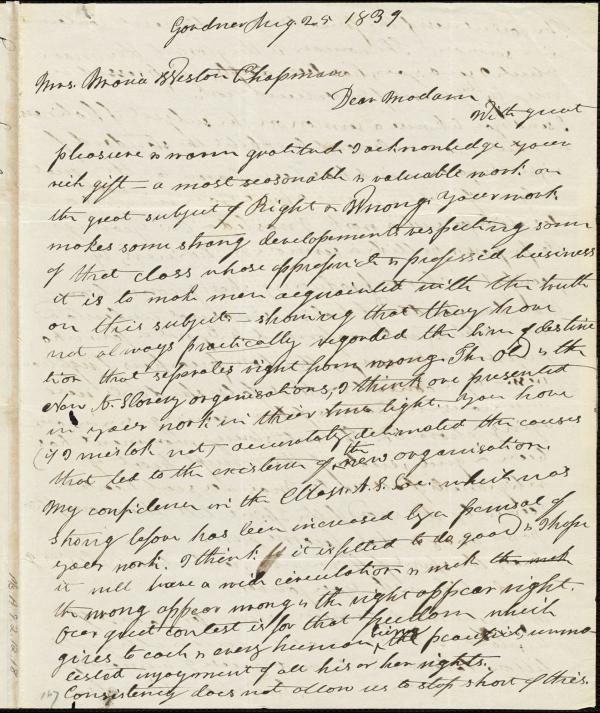 Gardner Aug. 25 1839
Mrs. Maria Weston Chapman
Dear Madam
With great
pleasure & warm gratitude I acknowledge your
rich gift — a most seasonable & valuable work on
the great subject of Right or Wrong. Your work
makes some strong developements respecting some
of that class whose appropriate & professed business
it is to make men acquainted with the truth
on this subject — showing that they have
not always practically regarded the line of destinc
tion that separates right from wrong. The Old & the
New A. Slavery organisations, I think are presented
in your work in their true light. You have
(if I mistake not) accurately delineated the causes
that led to the existence of the new organisation.
My confidence in the Mass. A. S. Soc. which was
strong before has been increased by a perusal of
your work. I think it is fitted to do good & I hope
it will have a wide circulation &
the wrong appear wrong & the right appear right.
Our great contest is for that freedom which
gives to each & every human being the peaceful, unmo
lested injoyment of all his or her rights.
Consistency does not allow us to stop short of this.